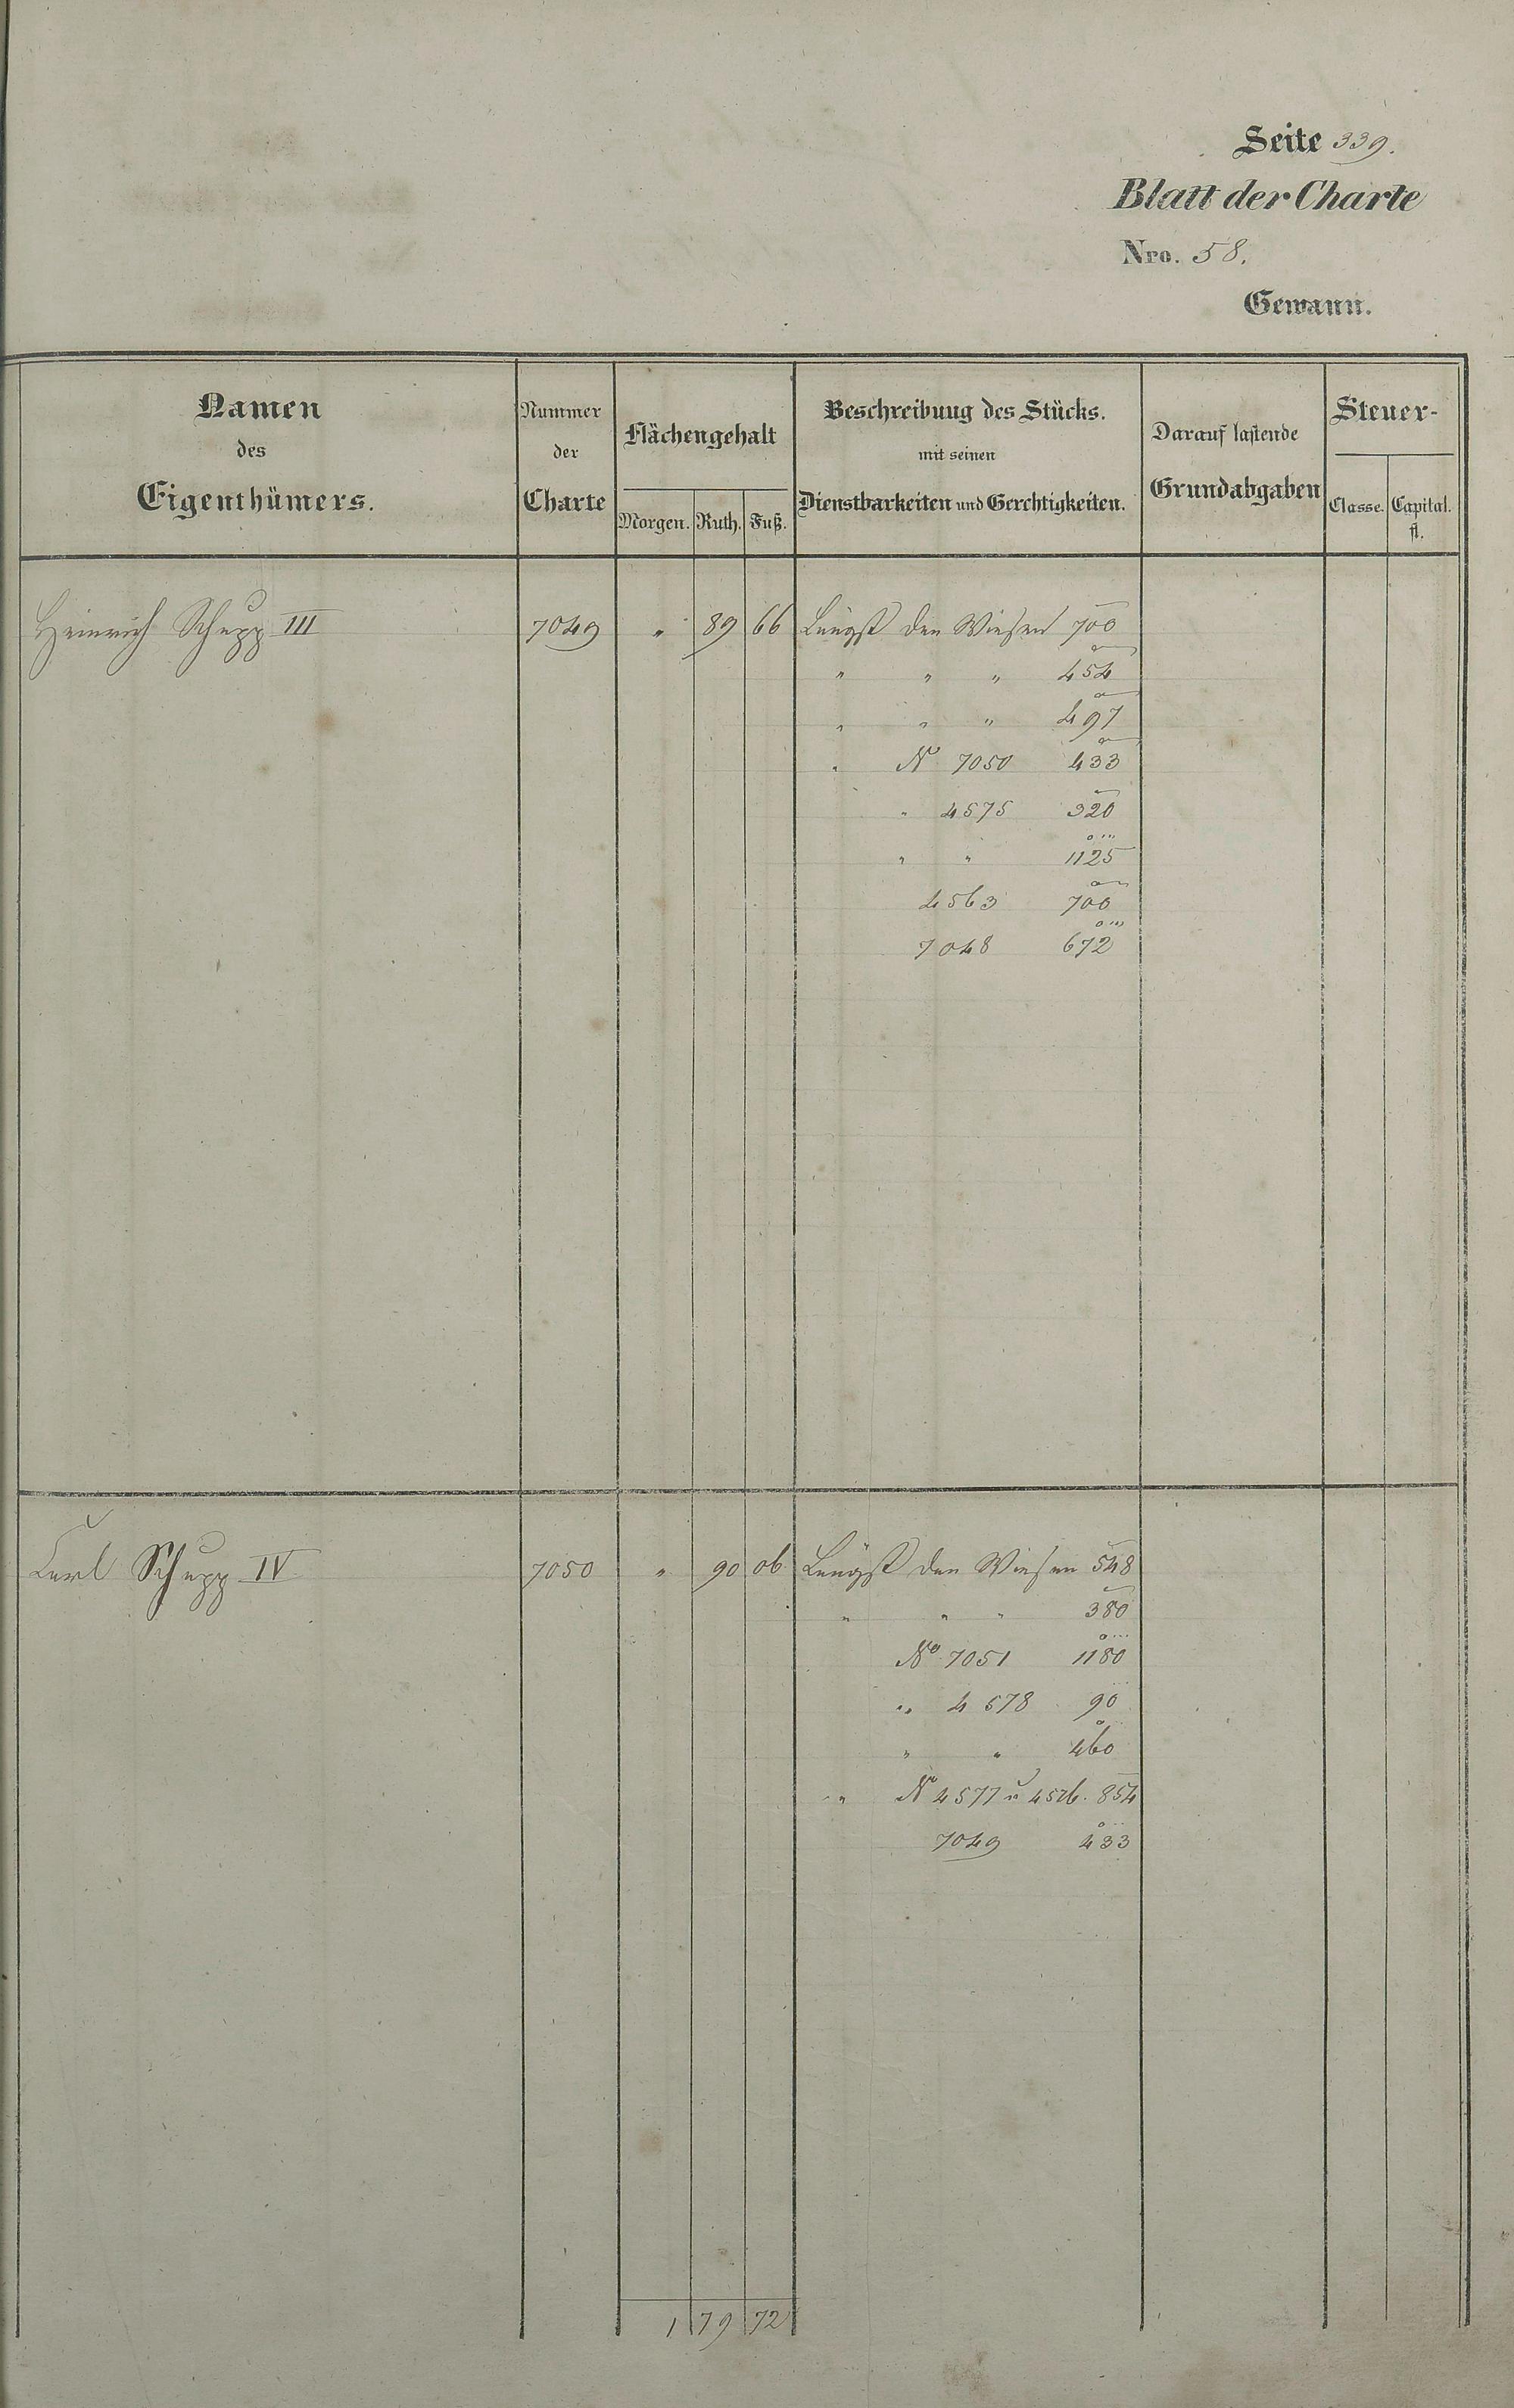 Seite 339.
Blatt der Charte
Nro. 58.
Gewann.
Namen
des
Eigenthümers.
Nummer
der
Charte
Flächengehalt
Morgen. Ruth. Fuß.
Beschreibung des Stücks.
mit seinen
Dienstbarkeiten und Gerechtigkeiten.
Darauf lastende
Grundabgaben
Steuer-
Classe. Capital.
fl.
Heinrich Schupp III 7049 " 89 66 Längst den Wiesen 700
" " " 454
" " " 497
" No 7050 433
" 4575 320
" " 1125
4563 700
7048 672
Carl Schupp IV 7050 " 90 06 Längst den Wiesen 548
" " " 380
No 7051 1180
" 4578 90
" " 460
" No 4577 u 4576. 854
7049 433
1 79 72